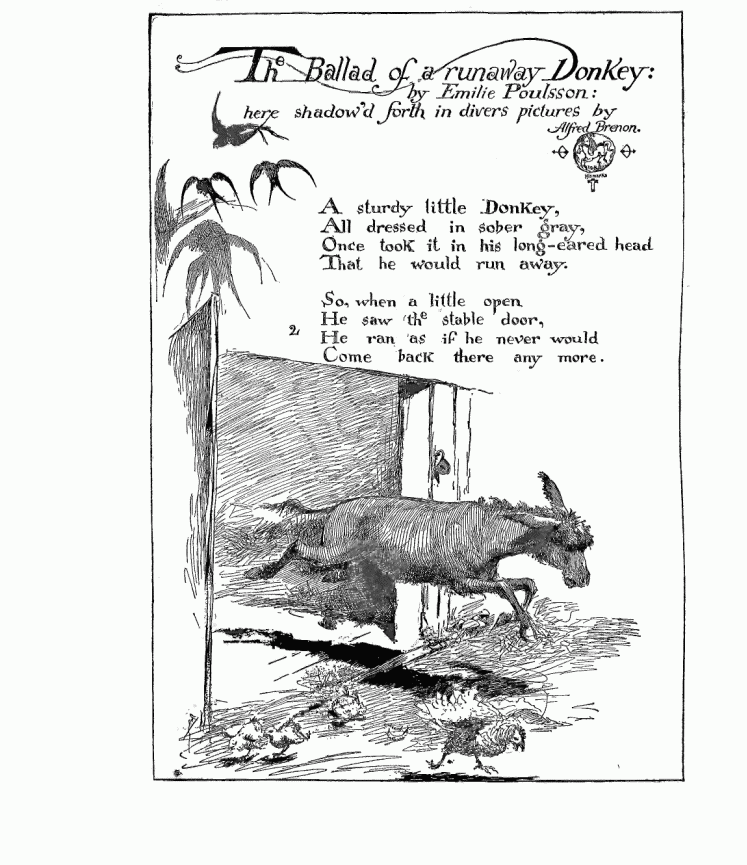 The Ballad of a runaway Donkey:
by Emilie Poulsson:
here shadow'd forth in divers pictures by
Alfred Brenon.
A sturdy little Donkey,
All dressed in sober gray,
Once took it in his long-eared head
That he would run away.
So, when a little open
2 He saw the stable door,
He ran as if he never would
Come back there any more.